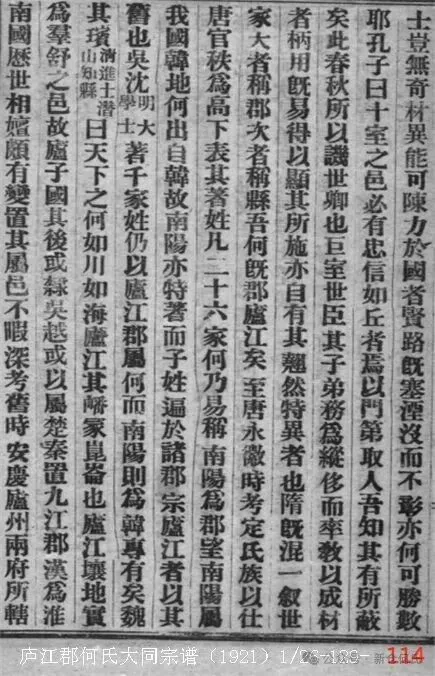 士豈無奇材異能可陳力於國者賢路既塞湮沒而不彰亦何可勝數
耶孔子曰十室之邑必有忠信如丘者焉以門第取人吾知其有所蔽
矣此春秋所以譏世卿也巨室世臣其子弟務爲縱侈而率敎以成材
者柄用既易得以顯其所施亦自有其翹然特異者也隋既混一叙世
家大者稱郡次者稱縣吾何既郡廬江矣至唐永徽時考定氏族以仕
唐官秩爲高下表其著姓凡二十六家何乃易稱南陽爲郡望南陽屬
我國韓地何出自韓故南陽亦特著而子姓遍於諸郡宗廬江者以其
舊也吳沈明大學士著千家姓仍以廬江郡屬何而南陽則爲韓專有矣魏
其瓆清進士潛山知縣曰天下之何如川如海廬江其嶓冢崑崙也廬江壤地實
爲羣舒之邑故廬子國其後或隸吳越或以屬楚秦置九江郡漢爲淮
南國歷世相嬗頗有變置其屬邑不暇深考舊時安慶廬州兩府所轄
庐江郡何氏大同宗谱（1921）1/26-129-
114